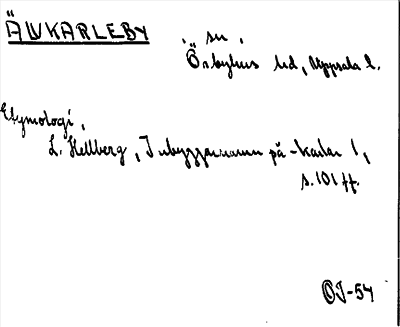 ÄLVKARLEBY
, sn,
Örbyhus hd, Uppsala l.
Etymologi,
L. Hellberg, Inbyggarnamn på -karlar 1,
s. 101 ff.
OJ-54